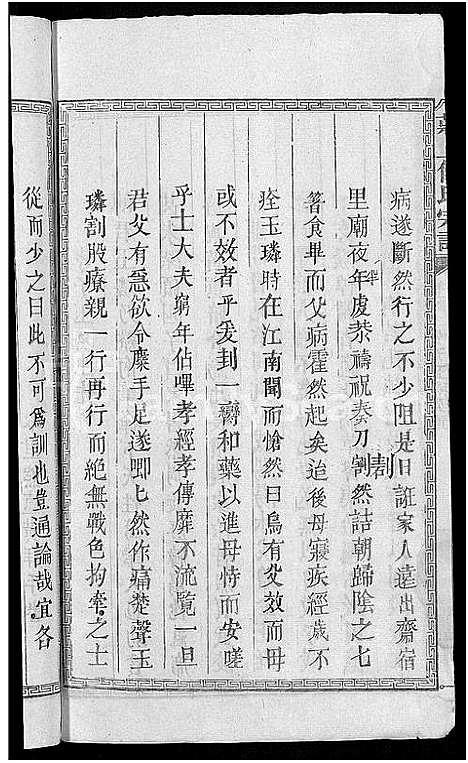 病遂斷然行之不少阻是日誑家人遠出齋宿
里廟夜年虔恭禱祝奏刀劃然詰朝歸陰之七
箸食畢而父病霍然起矣迨後母寢疾經歲不
痊玉璘時在江南聞而愴然曰烏有父效而母
或不效者乎爰封一臠和藥以進母恃而安嗟
乎士大夫窮年佔嗶孝經孝傳靡不流覽一旦
君父有急欲令糜手足遂卹匕然作痛楚聲玉
璘割股療親一行再行而絕無戰色拘牽之士
從而少之曰此不可為訓也豈通論哉宜各